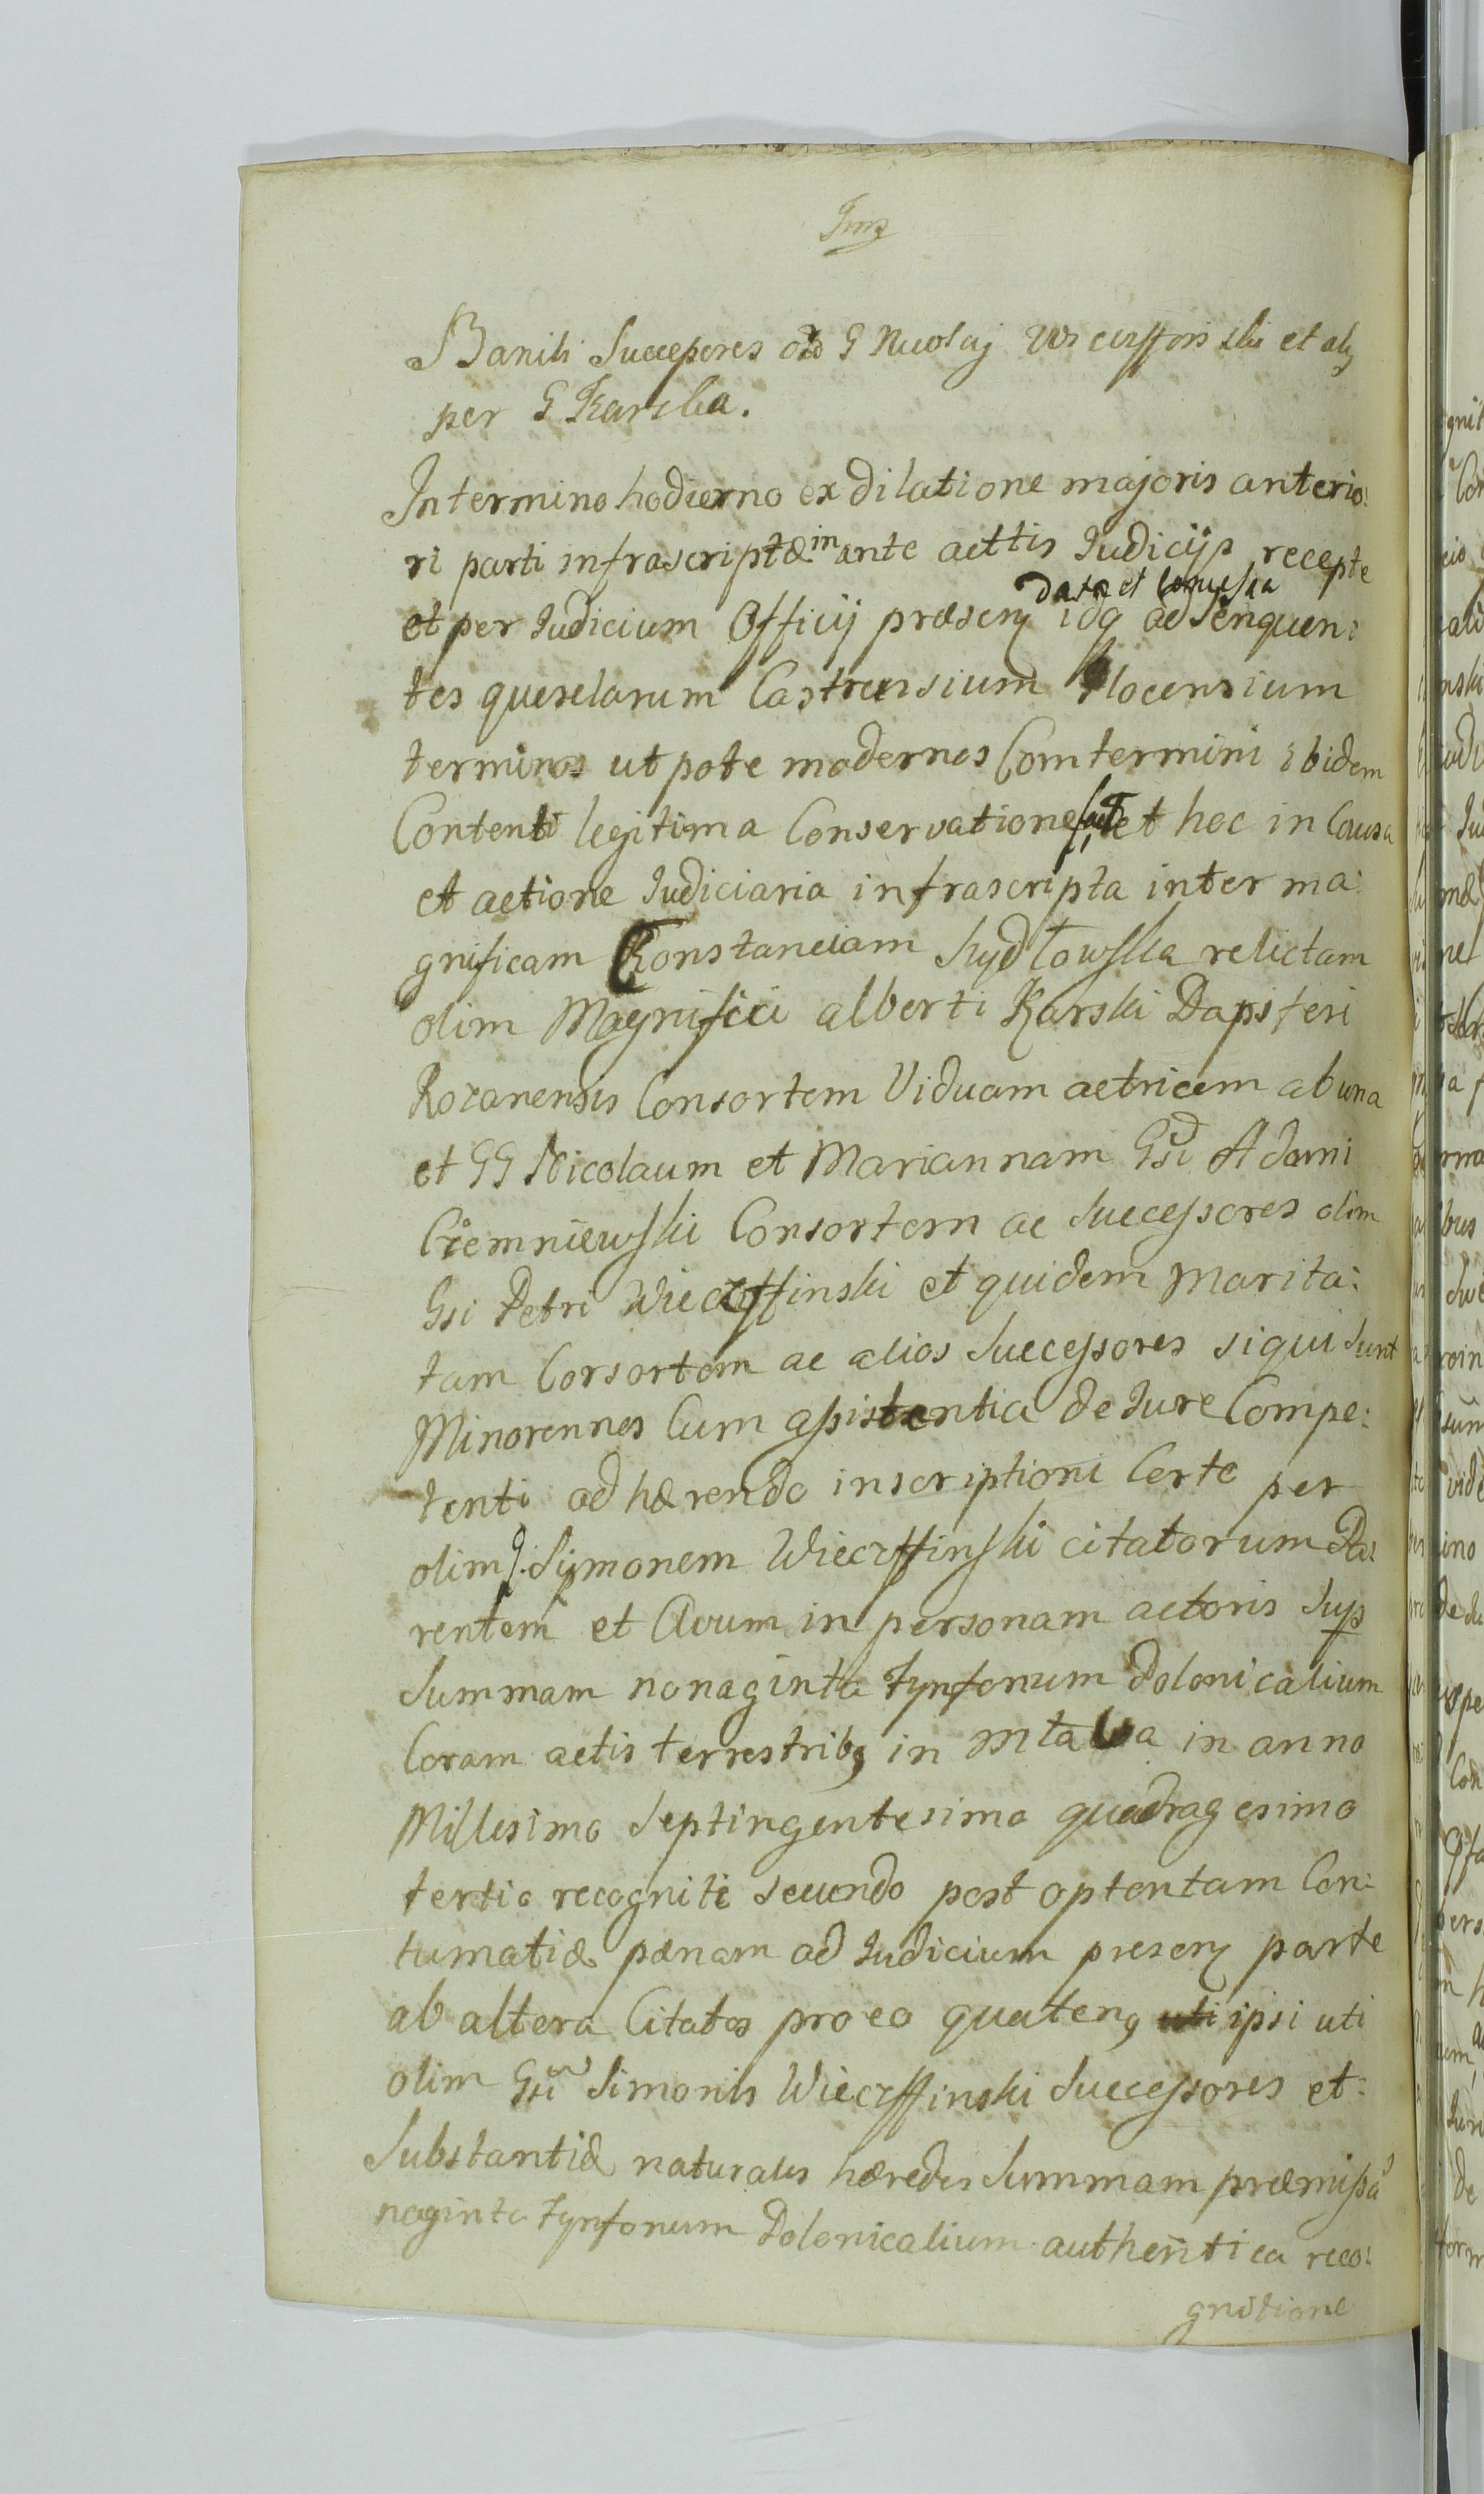 Baniti Successores olo G Nicolaj Wieczffinski et alij
per G Karska.
In termino hodierno ex dilatione majoris anterio:
ri parti infrascriptæ in ante acttis Judicijs recepte
data et concessa
et per Judicium Officij præsenz idq ad Senquen:
tes querelarum Castrensium Plocensium
terminos utpote modernos Com termini ibidem
Contenti legitima Conservatione et hoc in Causa
et actione Judiciaria infrascripta inter ma:
gnificam Konstanciam Szydłowska relictam
olim Magnifici alberti Karski Dapiferi
Rozanensis Consortem Viduam actricem ab una
et GG Nicolaum et Mariannam Gsi Adami
Ciemniewski Consortem ac Successores olim
Gsi Petri Wieczffinski et quidem marita:
tam Corsortem ac alios Successores si qui Sunt
Minorennes Cum assistentia de Jure Compe:
tenti adhærendo inscriptioni Certe per
olim G. Symonem Wieczffinski citatorum Pa:
rentem et Avum in personam actoris Sup
Summam nonaginta Tynfonum Polonicalium
Coram actis terrestribq in Mlava in anno
Millesimo Septingentesimo quadragesimo
tertio recogniti secundo post optentam Con:
tumatiæ pænam ad Judicium presenz parte
ab altera Citatos pro eo quatenq uti ipsi uti
olim Gsi Simonis Wieczffinski Successores et:
Substantiæ naturales hæredes Summam præmissa
naginta Tynfonum Polonicalium authentica reco:
gnitione